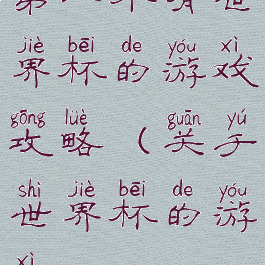 jiè bēi de yóu xì
界杯的游戏
gōng lüè guān yú
攻略（关于
shì jiè bēi de yóu
世界杯的游
xì